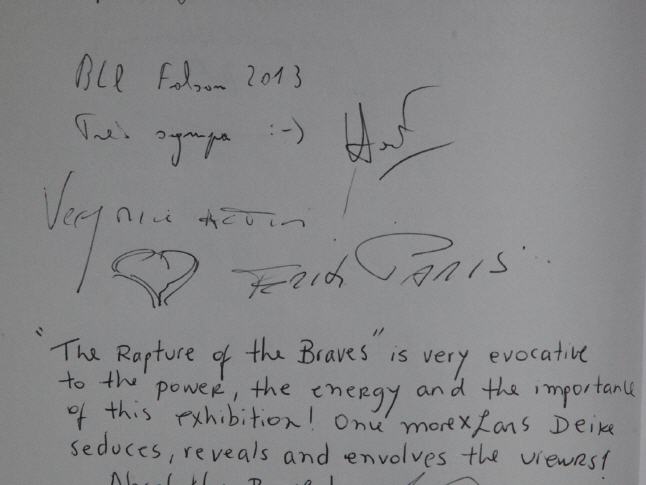 Folsom 2013
Très sympa :-)
Very nice action
Erich PARIS...
"The Rapture of the Braves" is very evocative
to the power, the energy and the importance
of this exhibition! Once more Lars Deike
seduces, reveals and envolves the viewrs!